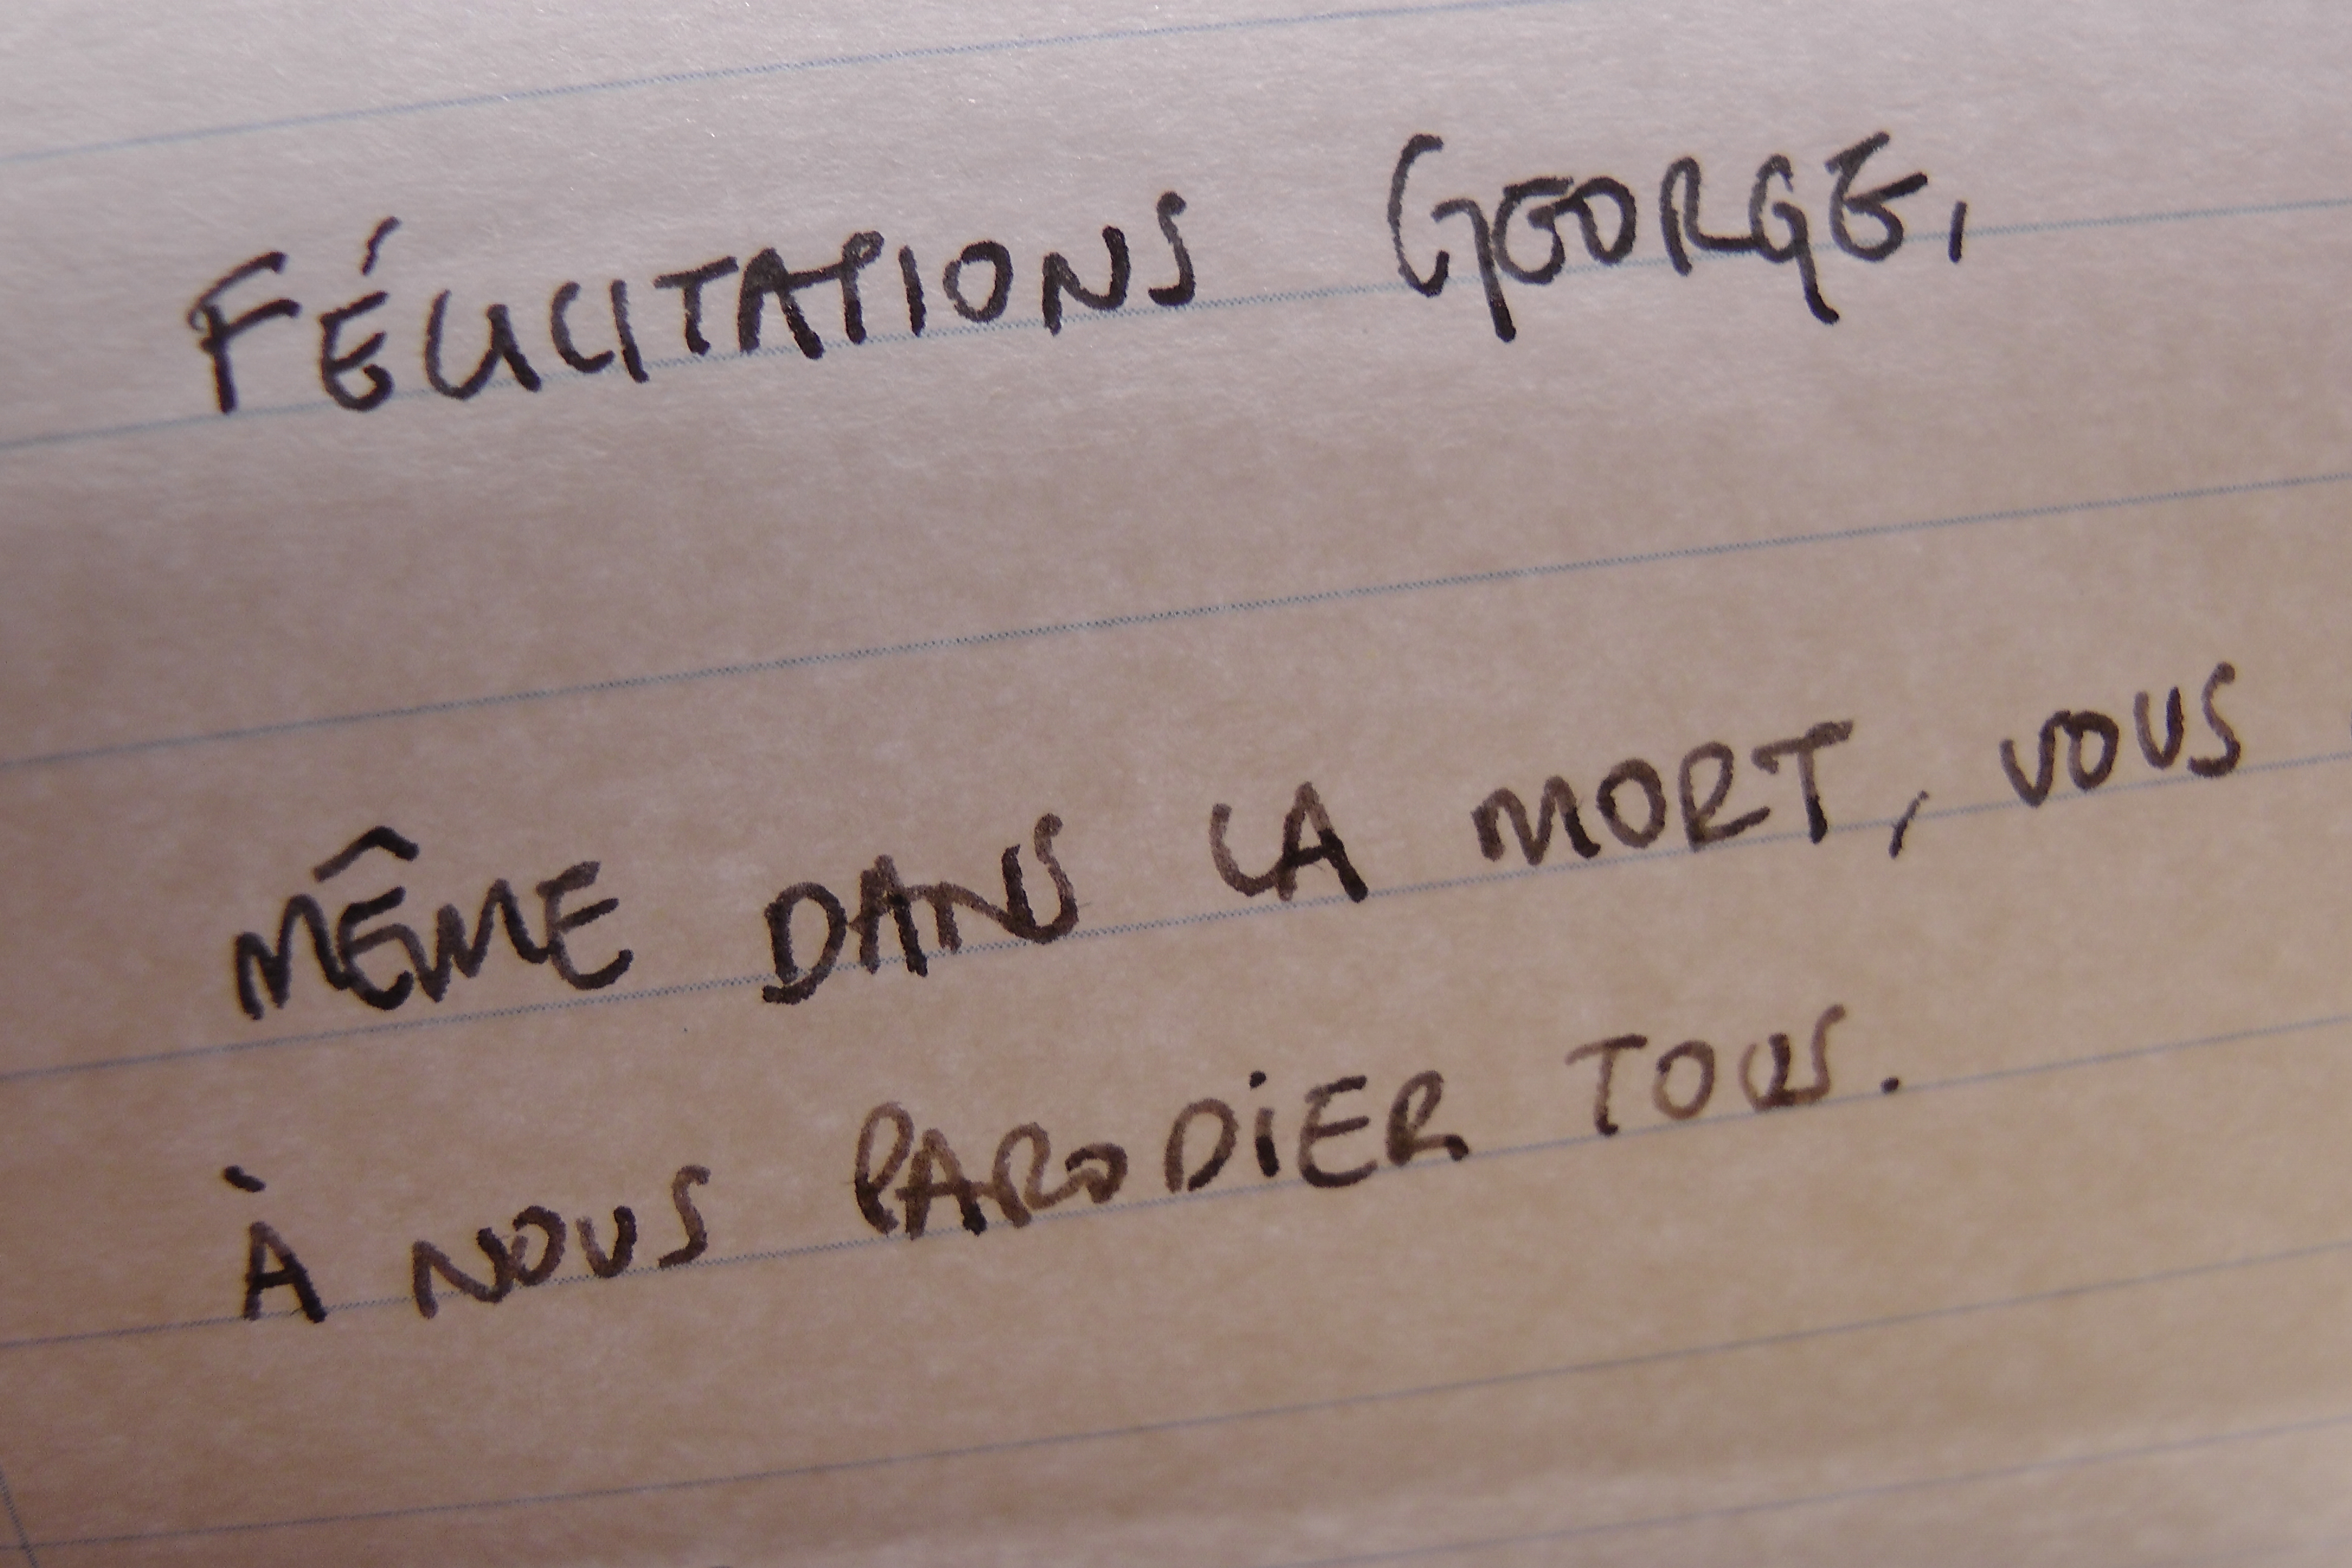 FÉLICITATIONS GEORGE,
MÊME DANS LA MORT, VOUS
À NOUS PARODIER TOUS.